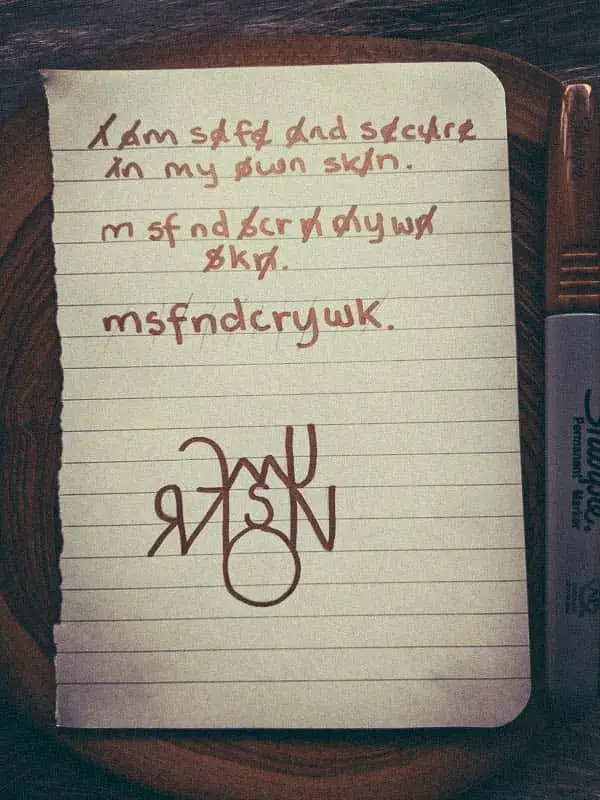 I am safe and secure
in my own skin.
m sf nd scr n mywn
skn.
msfndcrywk.
Sharpie
Permanent Marker